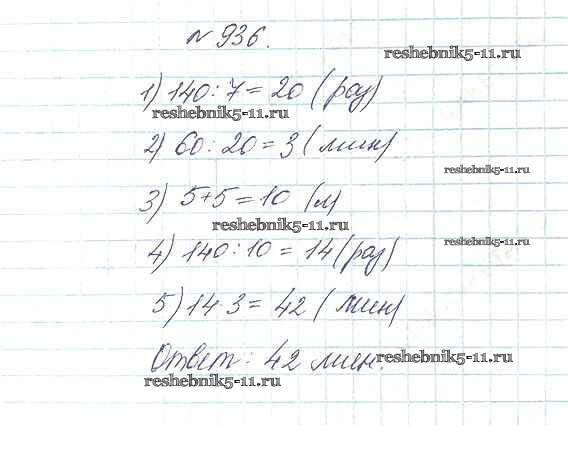 № 936.
reshebnik5-11.ru
1) 140 : 7 = 20 (раз)
reshebnik5-11.ru
2) 60 : 20 = 3 (мин)
reshebnik5-11.ru
3) 5+5 = 10 (л)
reshebnik5-11.ru
4) 140 : 10 = 14 (раз)
reshebnik5-11.ru
5) 14 · 3 = 42 (мин)
Ответ: 42 мин.
reshebnik5-11.ru
reshebnik5-11.ru